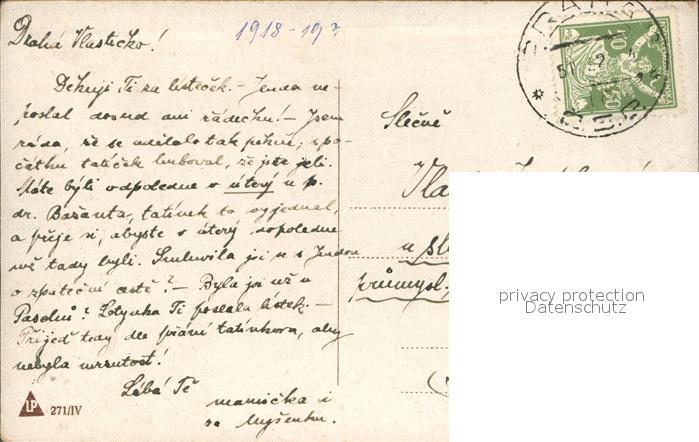 Drahá Vlastičko!
1918-19??
Děkuji Ti za lísteček. - Jenda ne-
poslal dosud ani řádečku! - Jsem
ráda, že se udělalo tak pěkně, spo-
čátku tatíček huboval, že jste jeli.
Máte býti odpoledne v úterý u p.
dr. Bašanta, tatínek to vyjednal,
a přeje si, abyste v úterý dopoledne
už tady byli. Smluvila jsi se s Jendou
o zpáteční cestě? - Byla jsi už u
? Lotynka Ti poslala lístek. -
Přijeď tedy dle přání tatínkova, aby
nebyla mrzutost!
Líbá Tě
mamička i
za
Slečně
průmysl.
LP 271/IV
privacy protection
Datenschutz